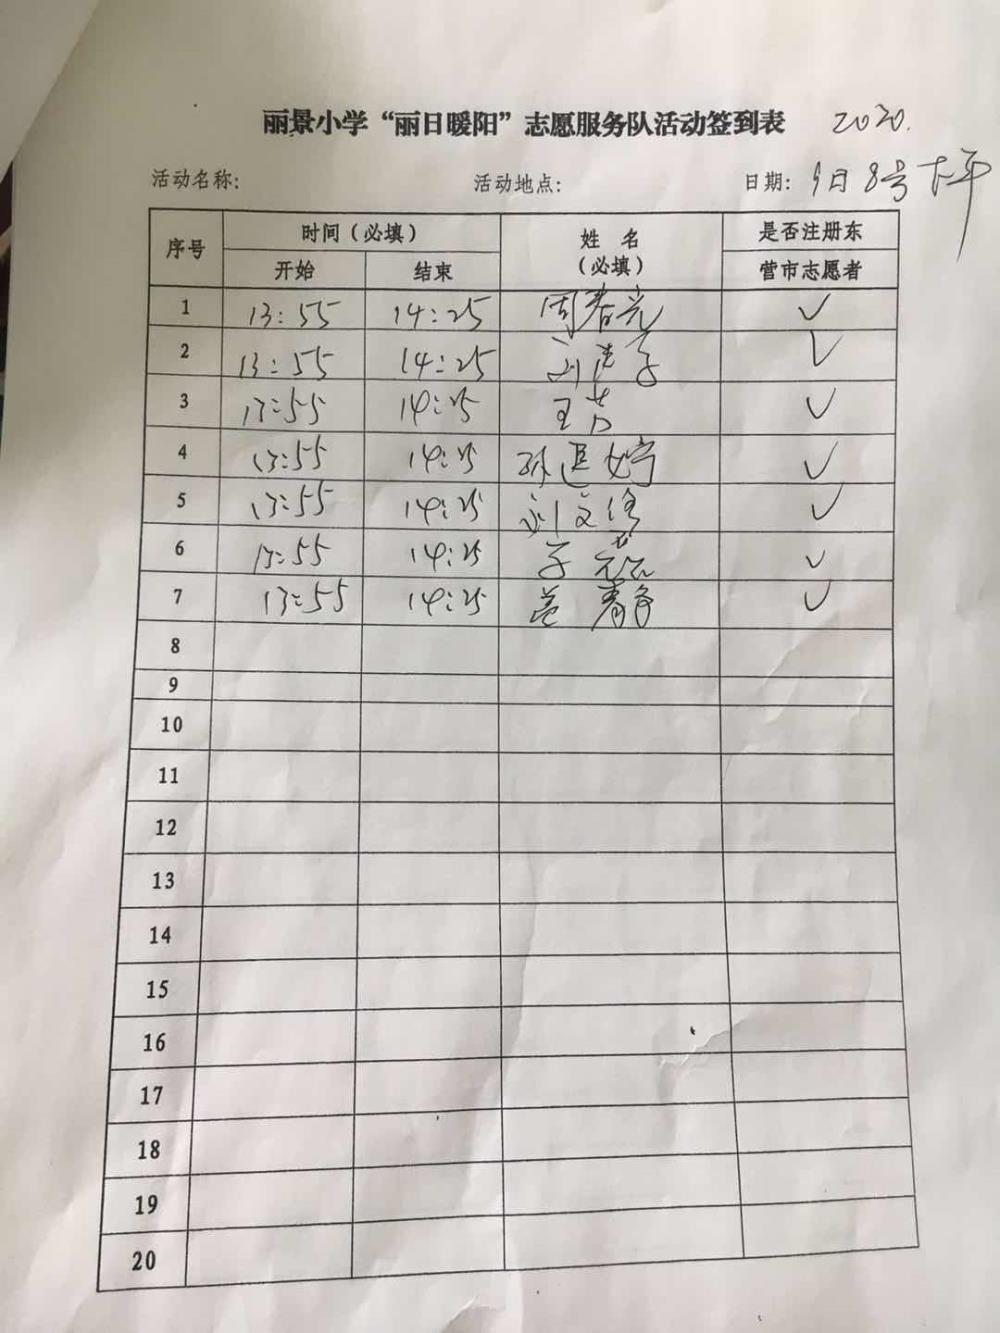 丽景小学“丽日暖阳”志愿服务队活动签到表 2020.
活动名称: 活动地点: 日期: 9月8号下午
序号 时间(必填) 姓 名 (必填) 是否注册东营市志愿者
开始 结束
1 13:55 14:25 周春光 ✓
2 13:55 14:25 刘 子 ✓
3 13:55 14:25 王芳 ✓
4 13:55 14:25 孙 婷 ✓
5 13:55 14:25 刘文 ✓
6 13:55 14:25 ✓
7 13:55 14:25 ✓
8
9
10
11
12
13
14
15
16
17
18
19
20